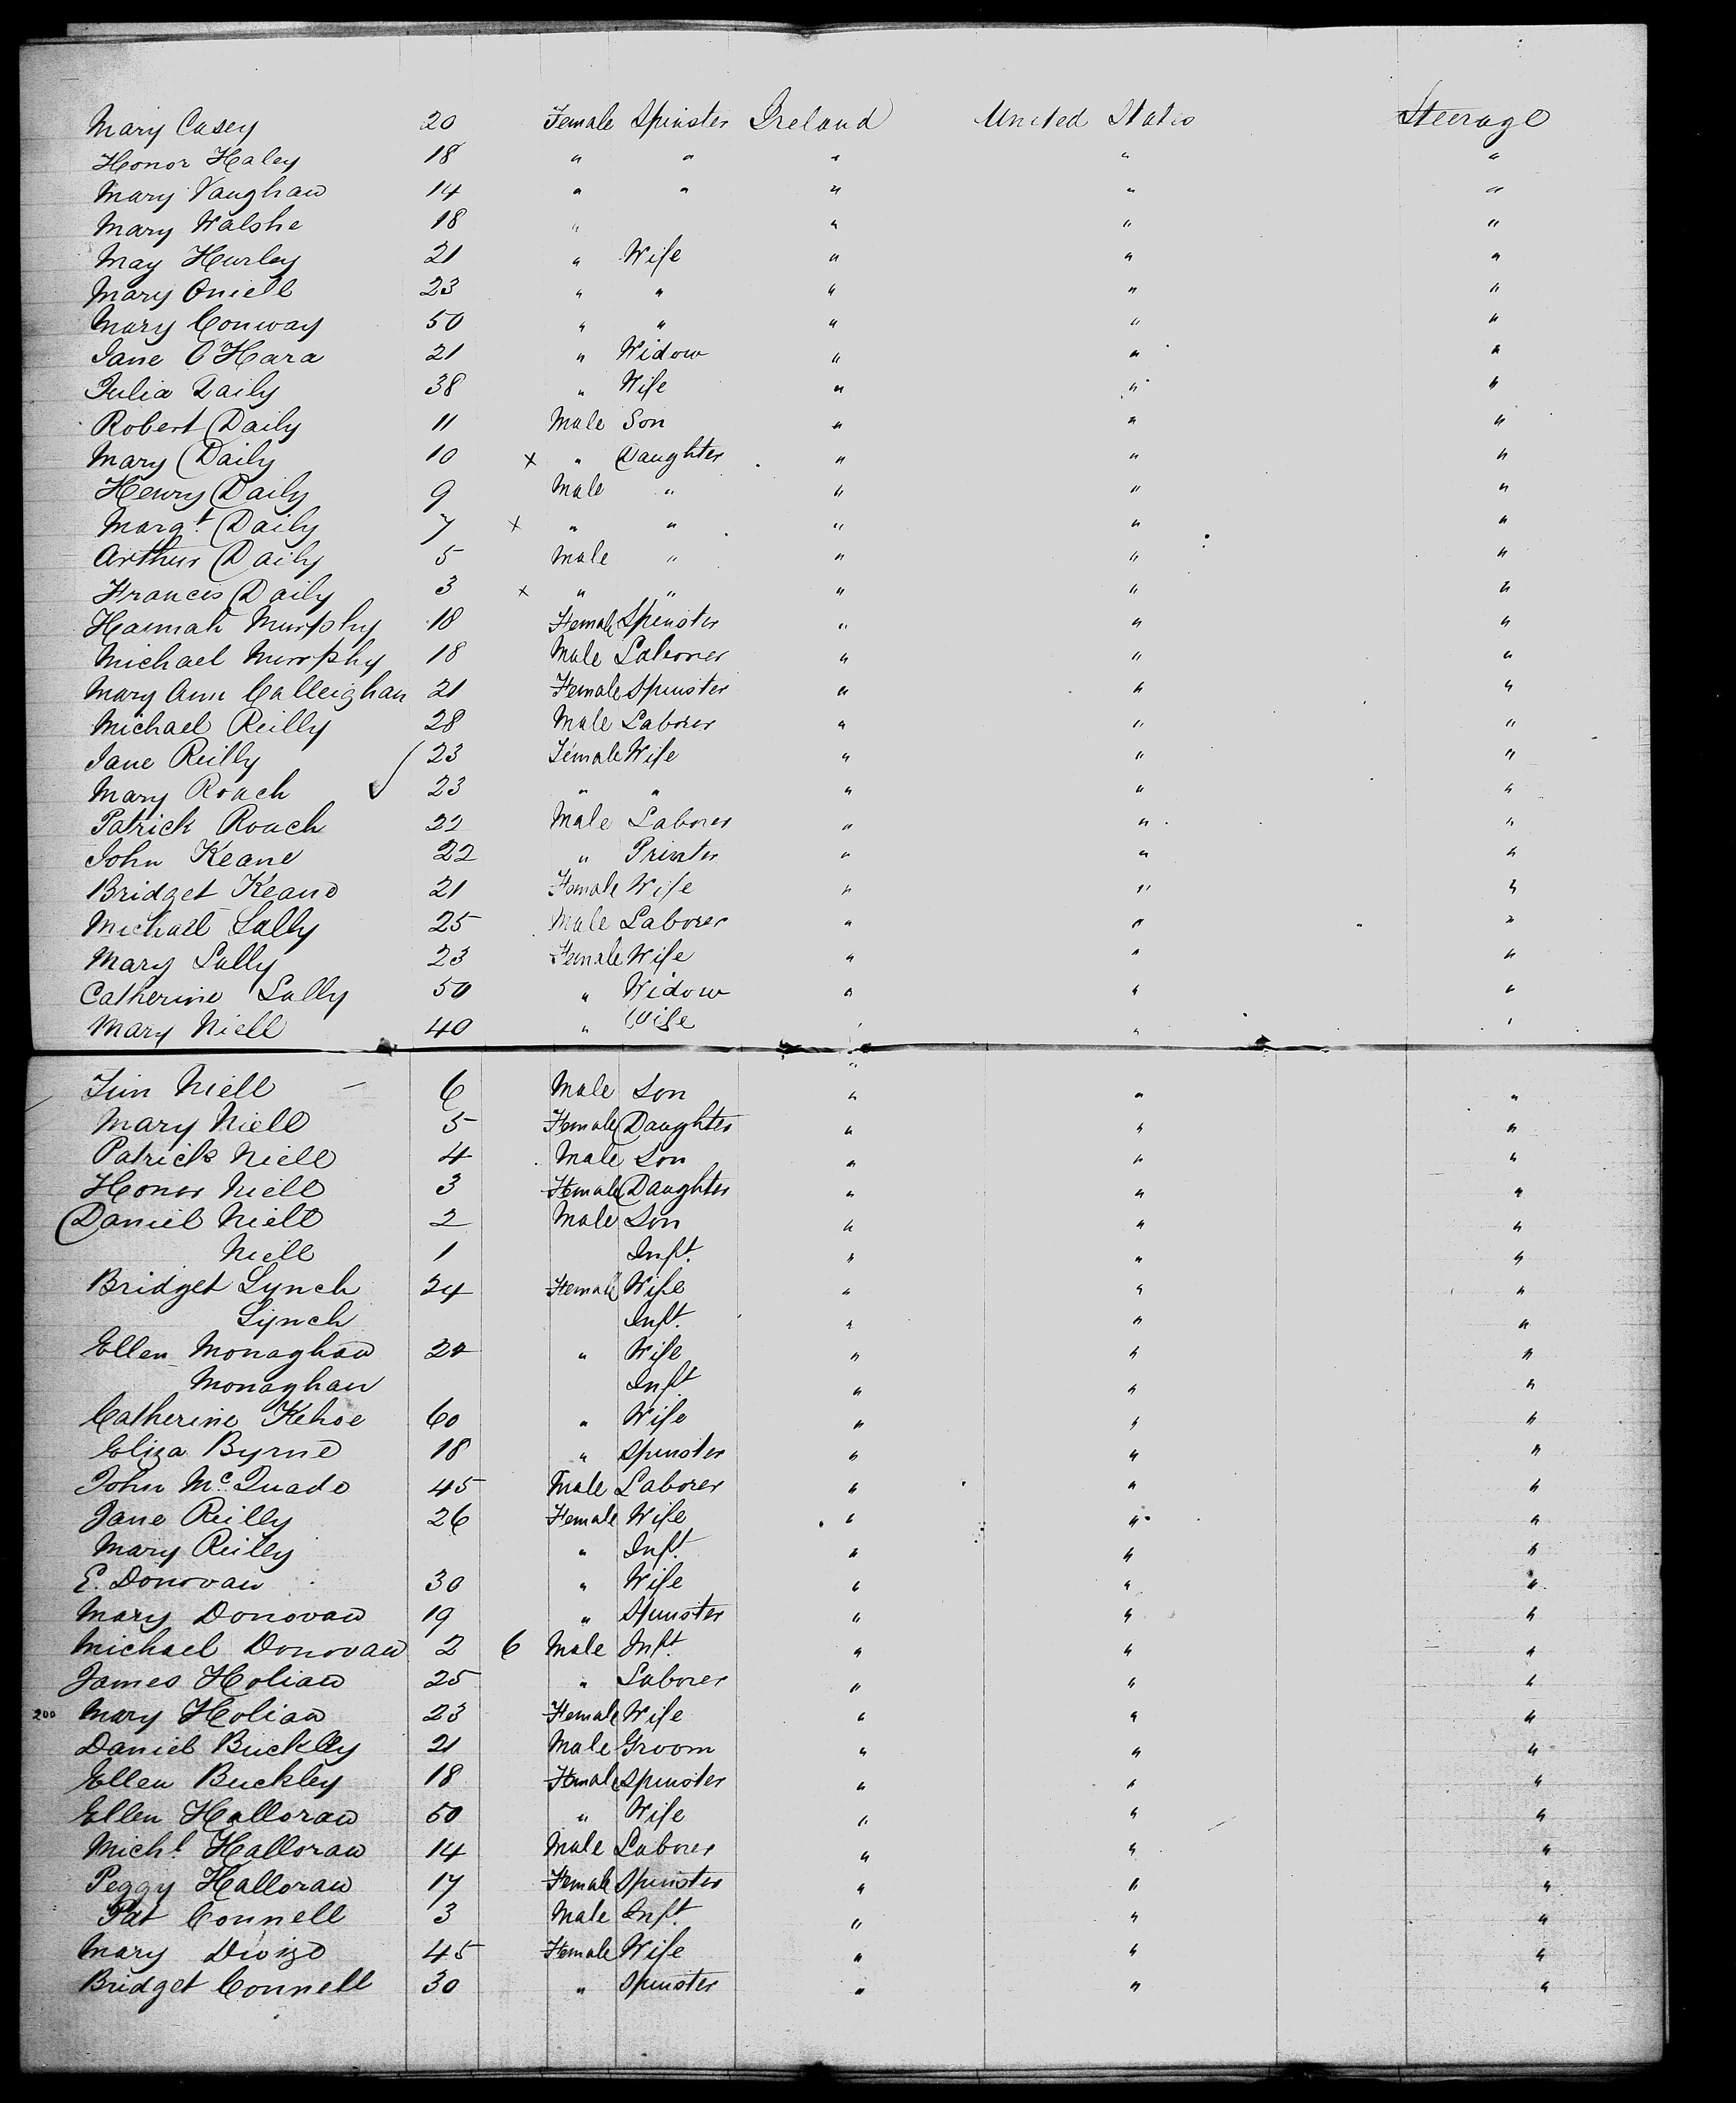 Mary Casey 20 Female Spinster Ireland United States Steerage
Honor Haley 18 " " " " "
Mary Vaughan 14 " " " " "
Mary Walshe 18 " " " "
May Hurley 21 " Wife " " "
Mary Oniell 23 " " " " "
Mary Conway 50 " " " " "
Jane O'Hara 21 " Widow " " "
Julia Daily 38 " Wife " " "
Robert Daily 11 Male Son " " "
Mary Daily 10 x " Daughter " " "
Henry Daily 9 Male " " " "
Margt Daily 7 x " " " " "
Arthur Daily 5 Male " " " "
Francis Daily 3 x " " " " "
Hannah Murphy 18 Female Spinster " " "
Michael Murphy 18 Male Laborer " " "
Mary Ann Calleighan 21 Female Spinster " " "
Michael Reilly 28 Male Laborer " " "
Jane Reilly 23 Female Wife " " "
Mary Roach ✓ 23 " " " " "
Patrick Roach 22 Male Laborer " " "
John Keane 22 " Printer " " "
Bridget Keane 21 Female Wife " " "
Michael Lally 25 Male Laborer " " "
Mary Lally 23 Female Wife " " "
Catherine Lally 50 " Widow " " "
Mary Niell 40 " Wife " " "
Jim Niell 6 Male Son " " "
Mary Niell 5 Female Daughter " " "
Patrick Niell 4 Male Son " " "
Honor Niell 3 Female Daughter " " "
Daniel Niell 2 Male Son " " "
Niell 1 Inft. " " "
Bridget Lynch 24 Female Wife " " "
Lynch Inft. " " "
Ellen Monaghan " Wife " " "
Monaghan Inft. " " "
Catherine Kehoe 60 " Wife " " "
Eliza Byrne 18 " Spinster " " "
John Mc Quade 45 Male Laborer " " "
Jane Reilly 26 Female Wife " " "
Mary Reilly " Inft. " " "
E. Donovan 30 " Wife " " "
Mary Donovan 19 " Spinster " " "
Michael Donovan 2 6 Male Inft. " " "
James Holian 25 " Laborer " " "
200 Mary Holian 23 Female Wife " " "
Daniel Buckley 21 Male Groom " " "
Ellen Buckley 18 Female Spinster " " "
Ellen Halloran 50 " Wife " " "
Michl Halloran 14 Male Laborer " " "
Peggy Halloran 17 Female Spinster " " "
Pat Connell 3 Male Inft. " " "
Mary 45 Female Wife " " "
Bridget Connell 30 " Spinster " " "